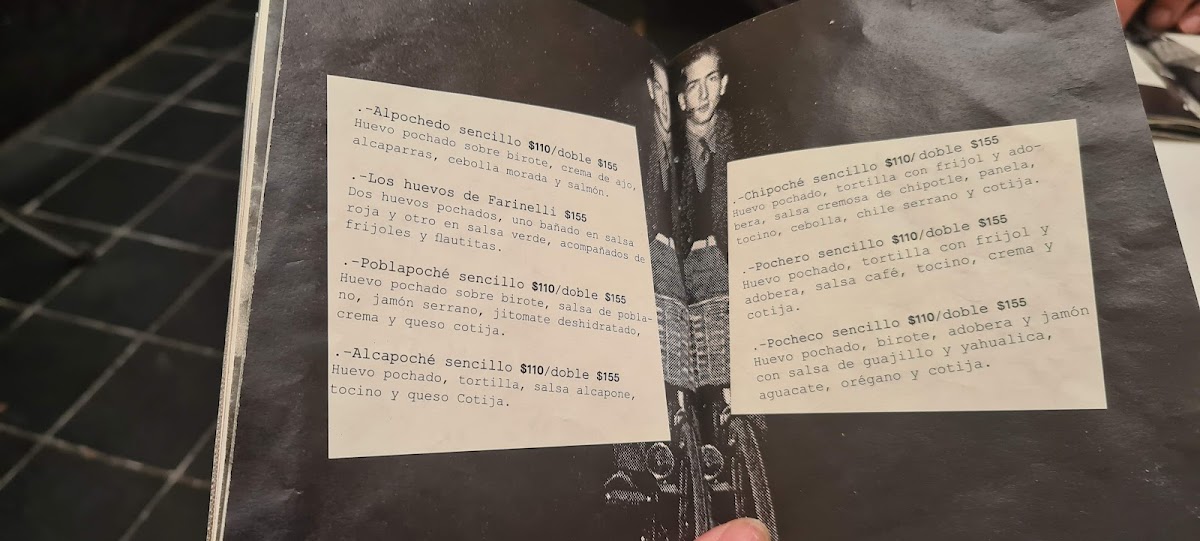 .-Alpochedo sencillo $110/doble $155
Huevo pochado sobre birote, crema de ajo,
alcaparras, cebolla morada y salmón.
.-Los huevos de Farinelli $155
Dos huevos pochados, uno bañado en salsa
roja y otro en salsa verde, acompañados de
frijoles y flautitas.
.-Poblapoché sencillo $110/doble $155
Huevo pochado sobre birote, salsa de pobla-
no, jamón serrano, jitomate deshidratado,
crema y queso cotija.
.-Alcapoché sencillo $110/doble $155
Huevo pochado, tortilla, salsa alcapone,
tocino y queso Cotija.
.-Chipoché sencillo $110/ doble $155
Huevo pochado, tortilla con frijol y ado-
bera, salsa cremosa de chipotle, panela,
tocino, cebolla, chile serrano y cotija.
.-Pochero sencillo $110/doble $155
Huevo pochado, tortilla con frijol y
adobera, salsa café, tocino, crema y
cotija.
.-Pocheco sencillo $110/doble $155
Huevo pochado, birote, adobera y jamón
con salsa de guajillo y yahualica,
aguacate, orégano y cotija.